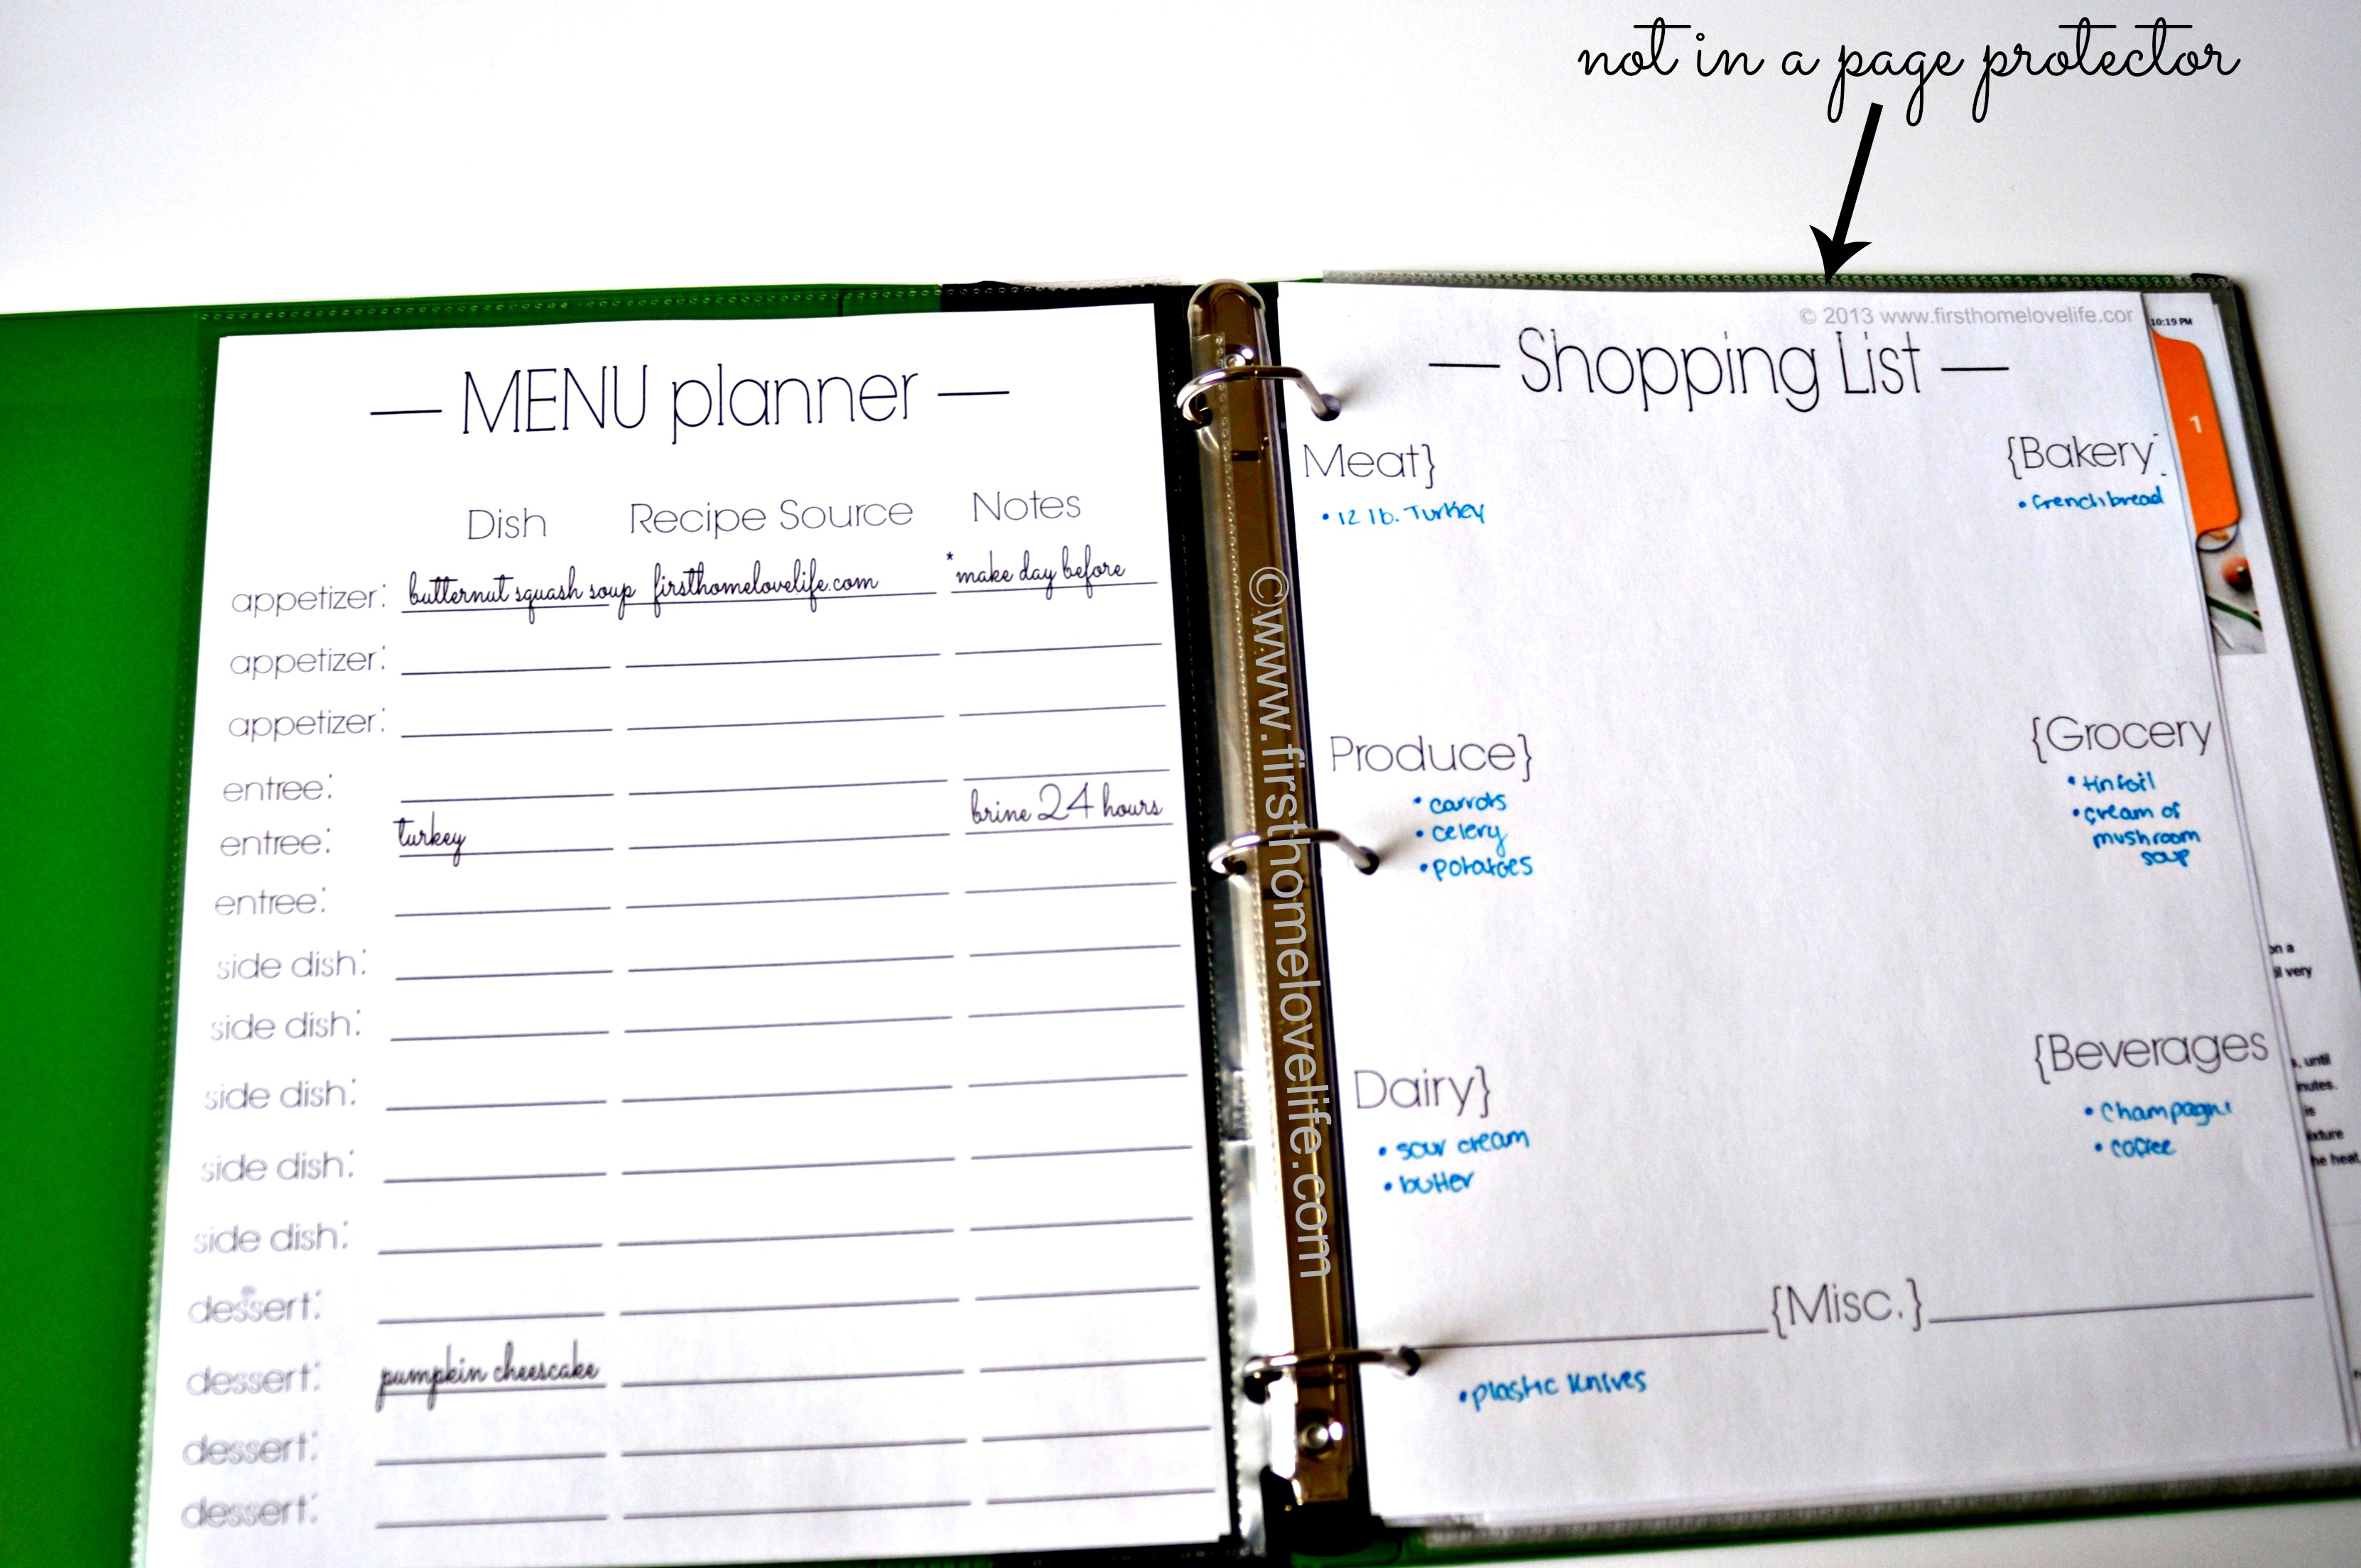 not in a page protector
— MENU planner —
Dish Recipe Source Notes
appetizer: butternut squash soup firsthomelovelife.com *make day before
appetizer:
appetizer:
entree:
entree: turkey brine 24 hours
entree:
side dish:
side dish:
side dish:
side dish:
side dish:
dessert:
dessert: pumpkin cheescake
dessert:
dessert:
©www.firsthomelovelife.com
© 2013 www.firsthomelovelife.cor
— Shopping List —
Meat}
• 12 lb. Turkey
{Bakery
• french bread
Produce}
• carrots
• celery
• potatoes
{Grocery
• tin foil
• cream of
mushroom
soup
Dairy}
• sour cream
• butter
{Beverages
• Champagne
• coffee
{Misc.}
• plastic knives
10:19 PM
1
on a
very
, until
nutes.
is
he heat,